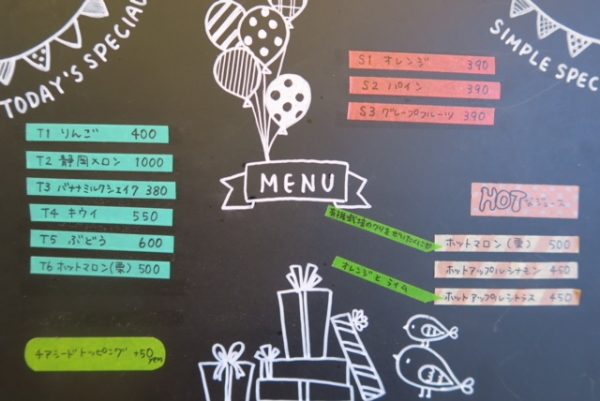 TODAY'S SPECIAL
T1 りんご 400
T2 静岡メロン 1000
T3 バナナミルクシェイク 380
T4 キウイ 550
T5 ぶどう 600
T6 ホットマロン(栗) 500
チアシードトッピング +50yen
MENU
SIMPLE SPEC
S1 オレンジ 390
S2 パイン 390
S3 グレープフルーツ 390
HOTなジュース
ホットマロン(栗) 500
ホットアップルシナモン 450
オレンジとライム
ホットアップルシトラス 450